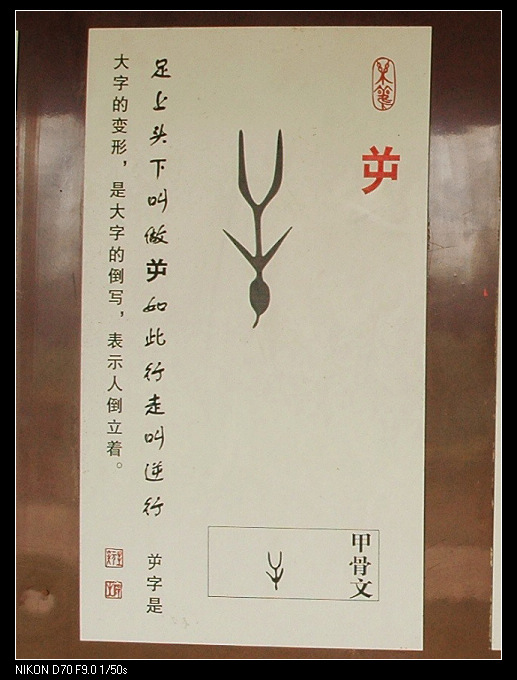 屰
甲骨文
足上头下叫做屰如此行走叫逆行 屰字是
大字的变形，是大字的倒写，表示人倒立着。
NIKON D70 F9.0 1/50s